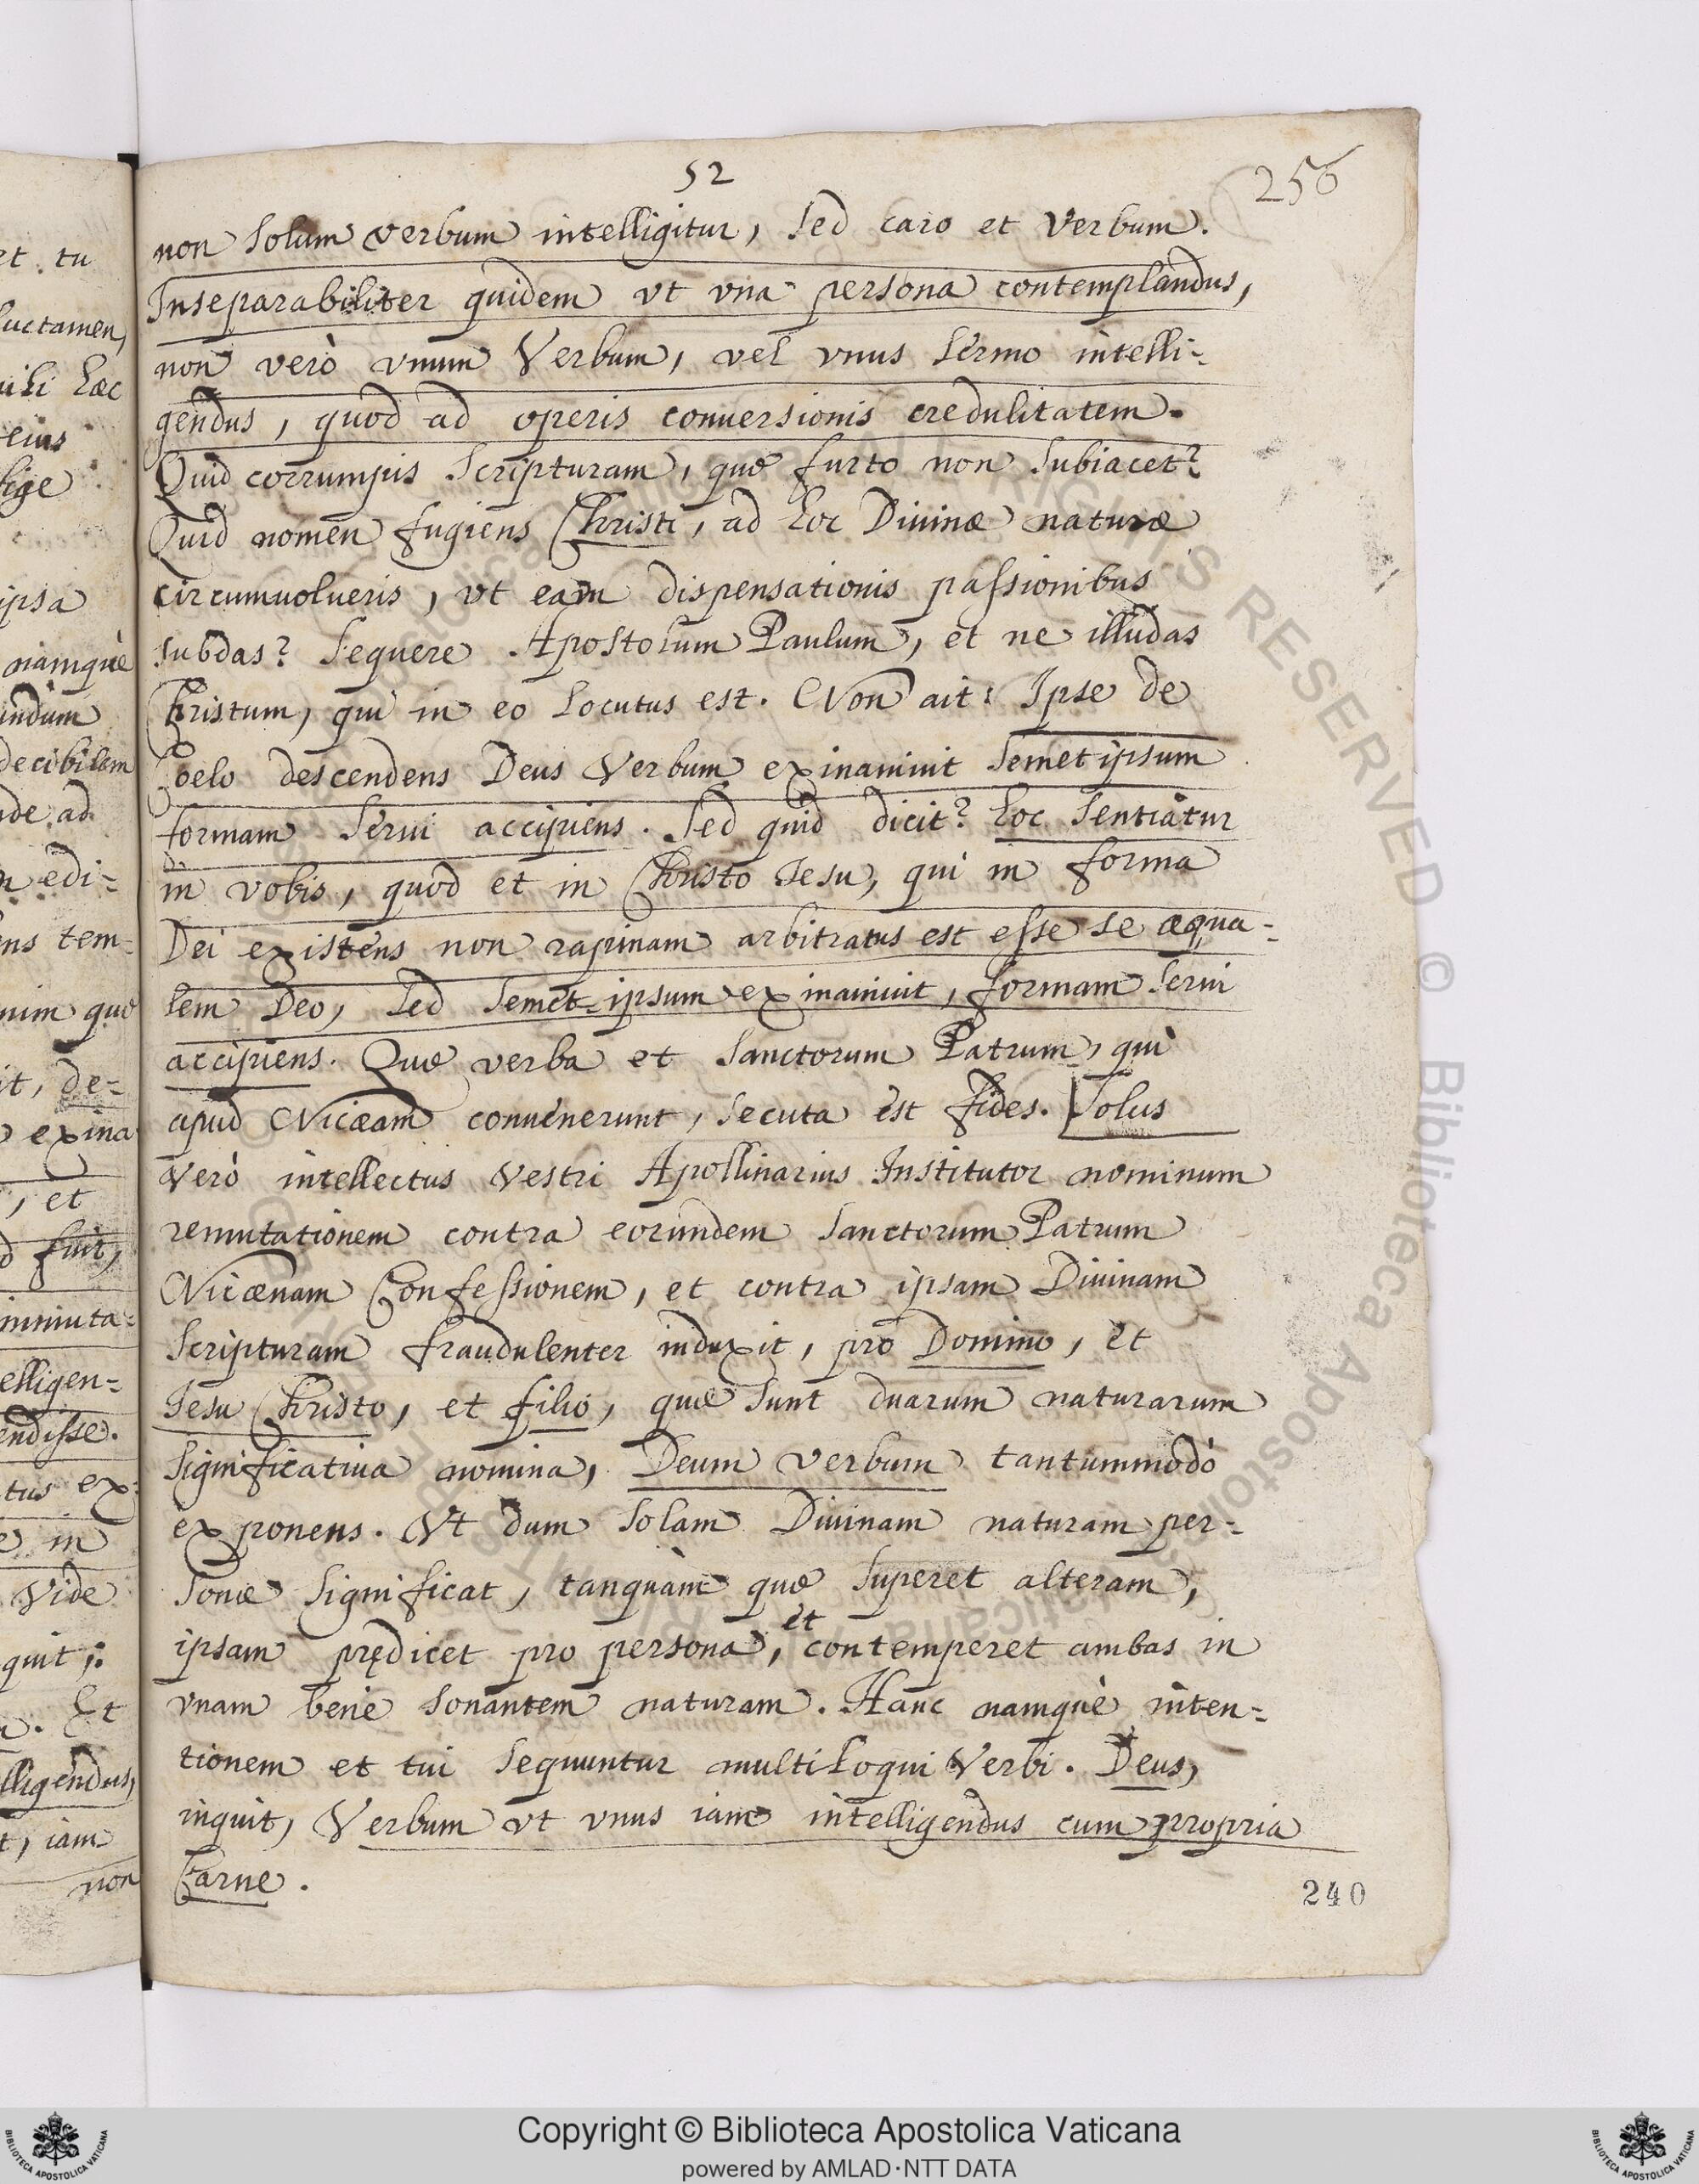 52
256
non solum verbum intelligitur, sed caro et Verbum.
Inseparabiliter quidem vt vna persona contemplandus,
non verò vnum Verbum, vel vnus sermo intelli-
gendus, quod ad operis conuersionis credulitatem.
Quid corrumpis Scripturam, quæ furto non subiacet?
Quid nomen fugiens Christi, ad hoc Diuinæ naturæ
circumuolueris, vt eam dispensationis passionibus
subdas? Sequere Apostolum Paulum, et ne illudas
Christum, qui in eo locutus est. Non ait: Ipse de
Coelo descendens Deus Verbum exinaniuit semetipsum
formam serui accipiens. Sed quid dicit? hoc sentiatur
in vobis, quod et in Christo Iesu, qui in forma
Dei existens non rapinam arbitratus est esse se æqua-
lem Deo, sed semet ipsum exinaniuit, formam serui
accipiens. Quæ verba et Sanctorum Patrum, qui
apud Nicæam conuenerunt, secuta est fides. Solus
verò intellectus vestri Apollinarius Institutor nominum
remutationem contra eorundem Sanctorum Patrum
Nicænam Confessionem, et contra ipsam Diuinam
Scripturam fraudulenter induxit, pro Domino, et
Iesu Christo, et filio, quæ sunt duarum naturarum
significatiua nomina, Deum verbum tantummodò
exponens. Vt dum solam Diuinam naturam per-
sonæ significat, tanquàm quæ superet alteram,
ipsam prędicet pro persona, et contemperet ambas in
vnam benè sonantem naturam. Hanc namquè inten-
tionem et tui sequuntur multiloqui Verbi. Deus,
inquit, Verbum vt vnus iam intelligendus cum propria
Carne.
240
et tu
luctamen,
hæc
eius
lige
ipsa
namquè
decibilem
de ad
edi-
tem-
nim quæ
it, de-
exina
, et
fuit,
immuta-
elligen-
endisse.
tus ex-
in
Vide
quit;
Et
lligendus,
t, iam
non
ALL RIGHTS RESERVED © Biblioteca Apostolica Vaticana
Copyright © Biblioteca Apostolica Vaticana
powered by AMLAD·NTT DATA
BIBLIOTECA APOSTOLICA VATICANA
BIBLIOTECA APOSTOLICA VATICANA